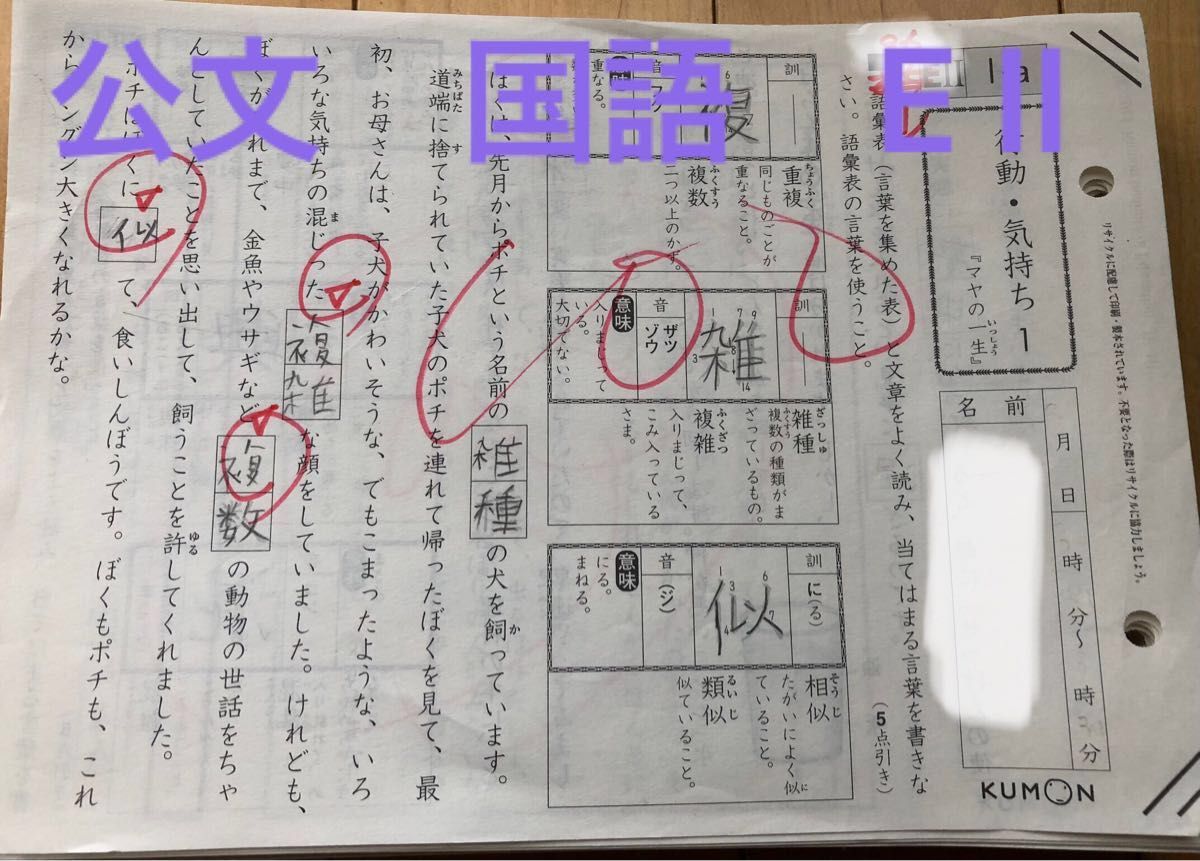 公文 国語 EⅡ
EⅡ 1a
行動・気持ち 1
『マヤの一生』
いっしょう
月 日 時 分～ 時 分
名前
KUMON
リサイクルに配慮して印刷・製本されています。不要となった際はリサイクルに協力しましょう。
語彙表（言葉を集めた表）と文章をよく読み、当てはまる言葉を書きな
さい。語彙表の言葉を使うこと。
（5点引き）
訓 ―
複
音
意味
重なる。
ちょうふく
重複
同じものごとが
重なること。
ふくすう
複数
二つ以上のかず。
訓 ―
雑
音 ザツ
ゾウ
意味
入りまじって
いる。
大切でない。
ざっしゅ
雑種
ふくすう
複数の種類がま
ざっているもの。
ふくざつ
複雑
入りまじって、
こみ入っている
さま。
訓 に(る)
似
音 (ジ)
意味
にる。
まねる。
そうじ
相似
たがいによく似
に
ていること。
るいじ
類似
似ていること。
ぼくは、先月からポチという名前の雑種の犬を飼っています。
か
みちばた す
道端に捨てられていた子犬のポチを連れて帰ったぼくを見て、最
初、お母さんは、子犬がかわいそうな、でもこまったような、いろ
いろな気持ちの混じった複雑な顔をしていました。けれども、
ま
ぼくがこれまで、金魚やウサギなど複数の動物の世話をちゃ
んとしていたことを思い出して、飼うことを許してくれました。
ゆる
ポチはぼくに似て、食いしんぼうです。ぼくもポチも、これ
から、グングン大きくなれるかな。